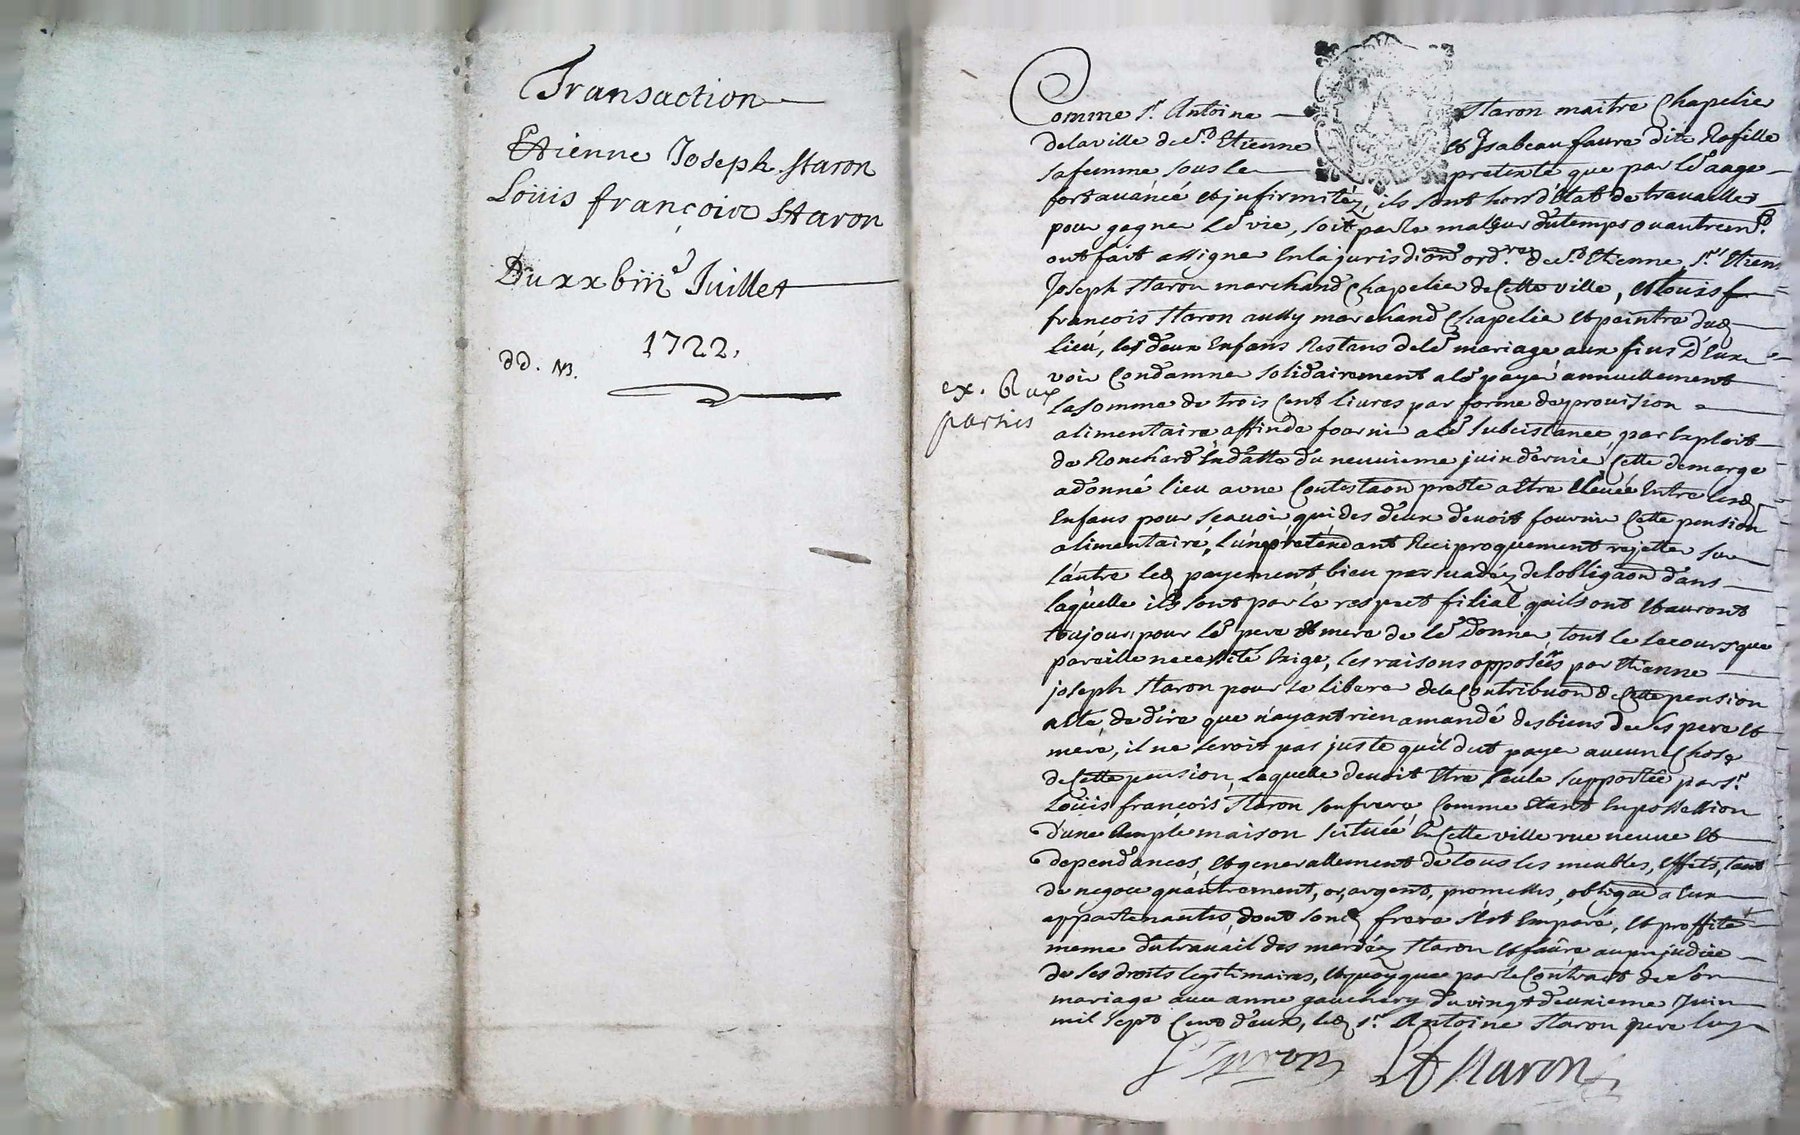 Transaction
Etienne Joseph Staron
Loüis françoin Staron
Du xxbiiie Juillet
1722.
dd. N3.
ex. b aux
parties
Comme Sr. Antoine Staron maitre Chapelie
delaville de St. Etienne et Ysabeau faure dite Rofille
safemme sous le pretexte que par lr aage
fort auáncé et jnfirmitéz, ils sont hors d'Etat de travailler
pour gagner lr vie, soit par le maleur du temps ou autremt.
ont fait assigner En la jurisdion ordre. de St. Etienne, Sr. Etien
Joseph Staron marchand Chapelie de Cette ville, et louis f
françois Staron aussy marchand Chapelie et peintre dud
lieu, les deux Enfans Restans de lr mariage, aux fins D'Eux
voir Condamner Solidairement a lr payer annuellement
la somme de trois Cent livres par forme de provision
alimentaire, affin de fournir a lr Subcistance, par Exploit
de Ronchard En datte du neuuieme juin dernier, Cette demarge
a donné lieu a une Contestaon preste a Etre Eleuée Entre lesd
Enfans pour Scauoir qui des deux devoit fournir Cette pension
alimentaire, l'un pretendant Reciproquement rejetter sur
l'autre led payement, bien persuadéz de lobligaon dans
laquelle ils sont par le respect filial quils ont et auront
toujours pour lr pere et mere de lr donner tout le secours que
pareille necessité Exige, les raisons opposées par Etienne
joseph Staron pour se liberer de la Contribuon de Cette pension
a Eté de dire que n'ayant rien amandé des biens de ses pere et
mere, il ne seroit pas juste quil dut payer aucune Chose
de Cette pension, laquelle deuoit Etre seule supportée par Sr.
Loüis françois Staron son frere, Comme Etant En possession
d'une Ample maison Scituée En Cette ville rue neuue et
dependances, et generallement de tous les meubles, effets, tant
de negoce quautrement, or, argent, promesses, obligaon a Eux
appartenantes, dont sond frere s'est Emparé, et proffité
meme du travail des mariéz Staron et faure au prejudice
de ses droits legitimaires, et quoyque par le Contract de son
mariage avec anne gauchery du vingt deuxieme Juin
mil sept Cent deux, led Sr. Antoine Staron pere luy
Staron LF Staron